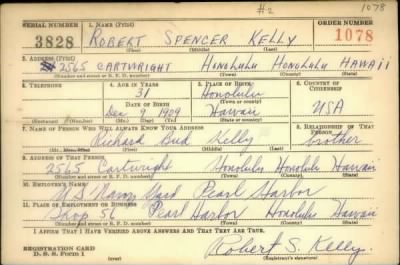 #2 1078
SERIAL NUMBER 1. NAME (Print) ORDER NUMBER
3828 ROBERT SPENCER KELLY 1078
(First) (Middle) (Last)
2. ADDRESS (Print)
2565 CARTWRIGHT HONOLULU HONOLULU HAWAII
(Number and street or R. F. D. number) (Town) (County) (State)
3. TELEPHONE 4. AGE IN YEARS 5. PLACE OF BIRTH 6. COUNTRY OF CITIZENSHIP
31 Honolulu
DATE OF BIRTH (Town or county)
Dec 9 1909 Hawaii USA
(Exchange) (Number) (Mo.) (Day) (Yr.) (State or country)
7. NAME OF PERSON WHO WILL ALWAYS KNOW YOUR ADDRESS 8. RELATIONSHIP OF THAT PERSON
Richard Bud Kelly brother
(First) (Middle) (Last)
9. ADDRESS OF THAT PERSON
2565 Cartwright Honolulu Honolulu Hawaii
(Number and street or R. F. D. number) (Town) (County) (State)
10. EMPLOYER'S NAME
U S Navy Yard Pearl Harbor
11. PLACE OF EMPLOYMENT OR BUSINESS
Shop 56 Pearl Harbor Honolulu Hawaii
(Number and street or R. F. D. number) (Town) (County) (State)
I AFFIRM THAT I HAVE VERIFIED ABOVE ANSWERS AND THAT THEY ARE TRUE.
REGISTRATION CARD
D. S. S. Form 1 Robert S. Kelly
(Registrant's signature)